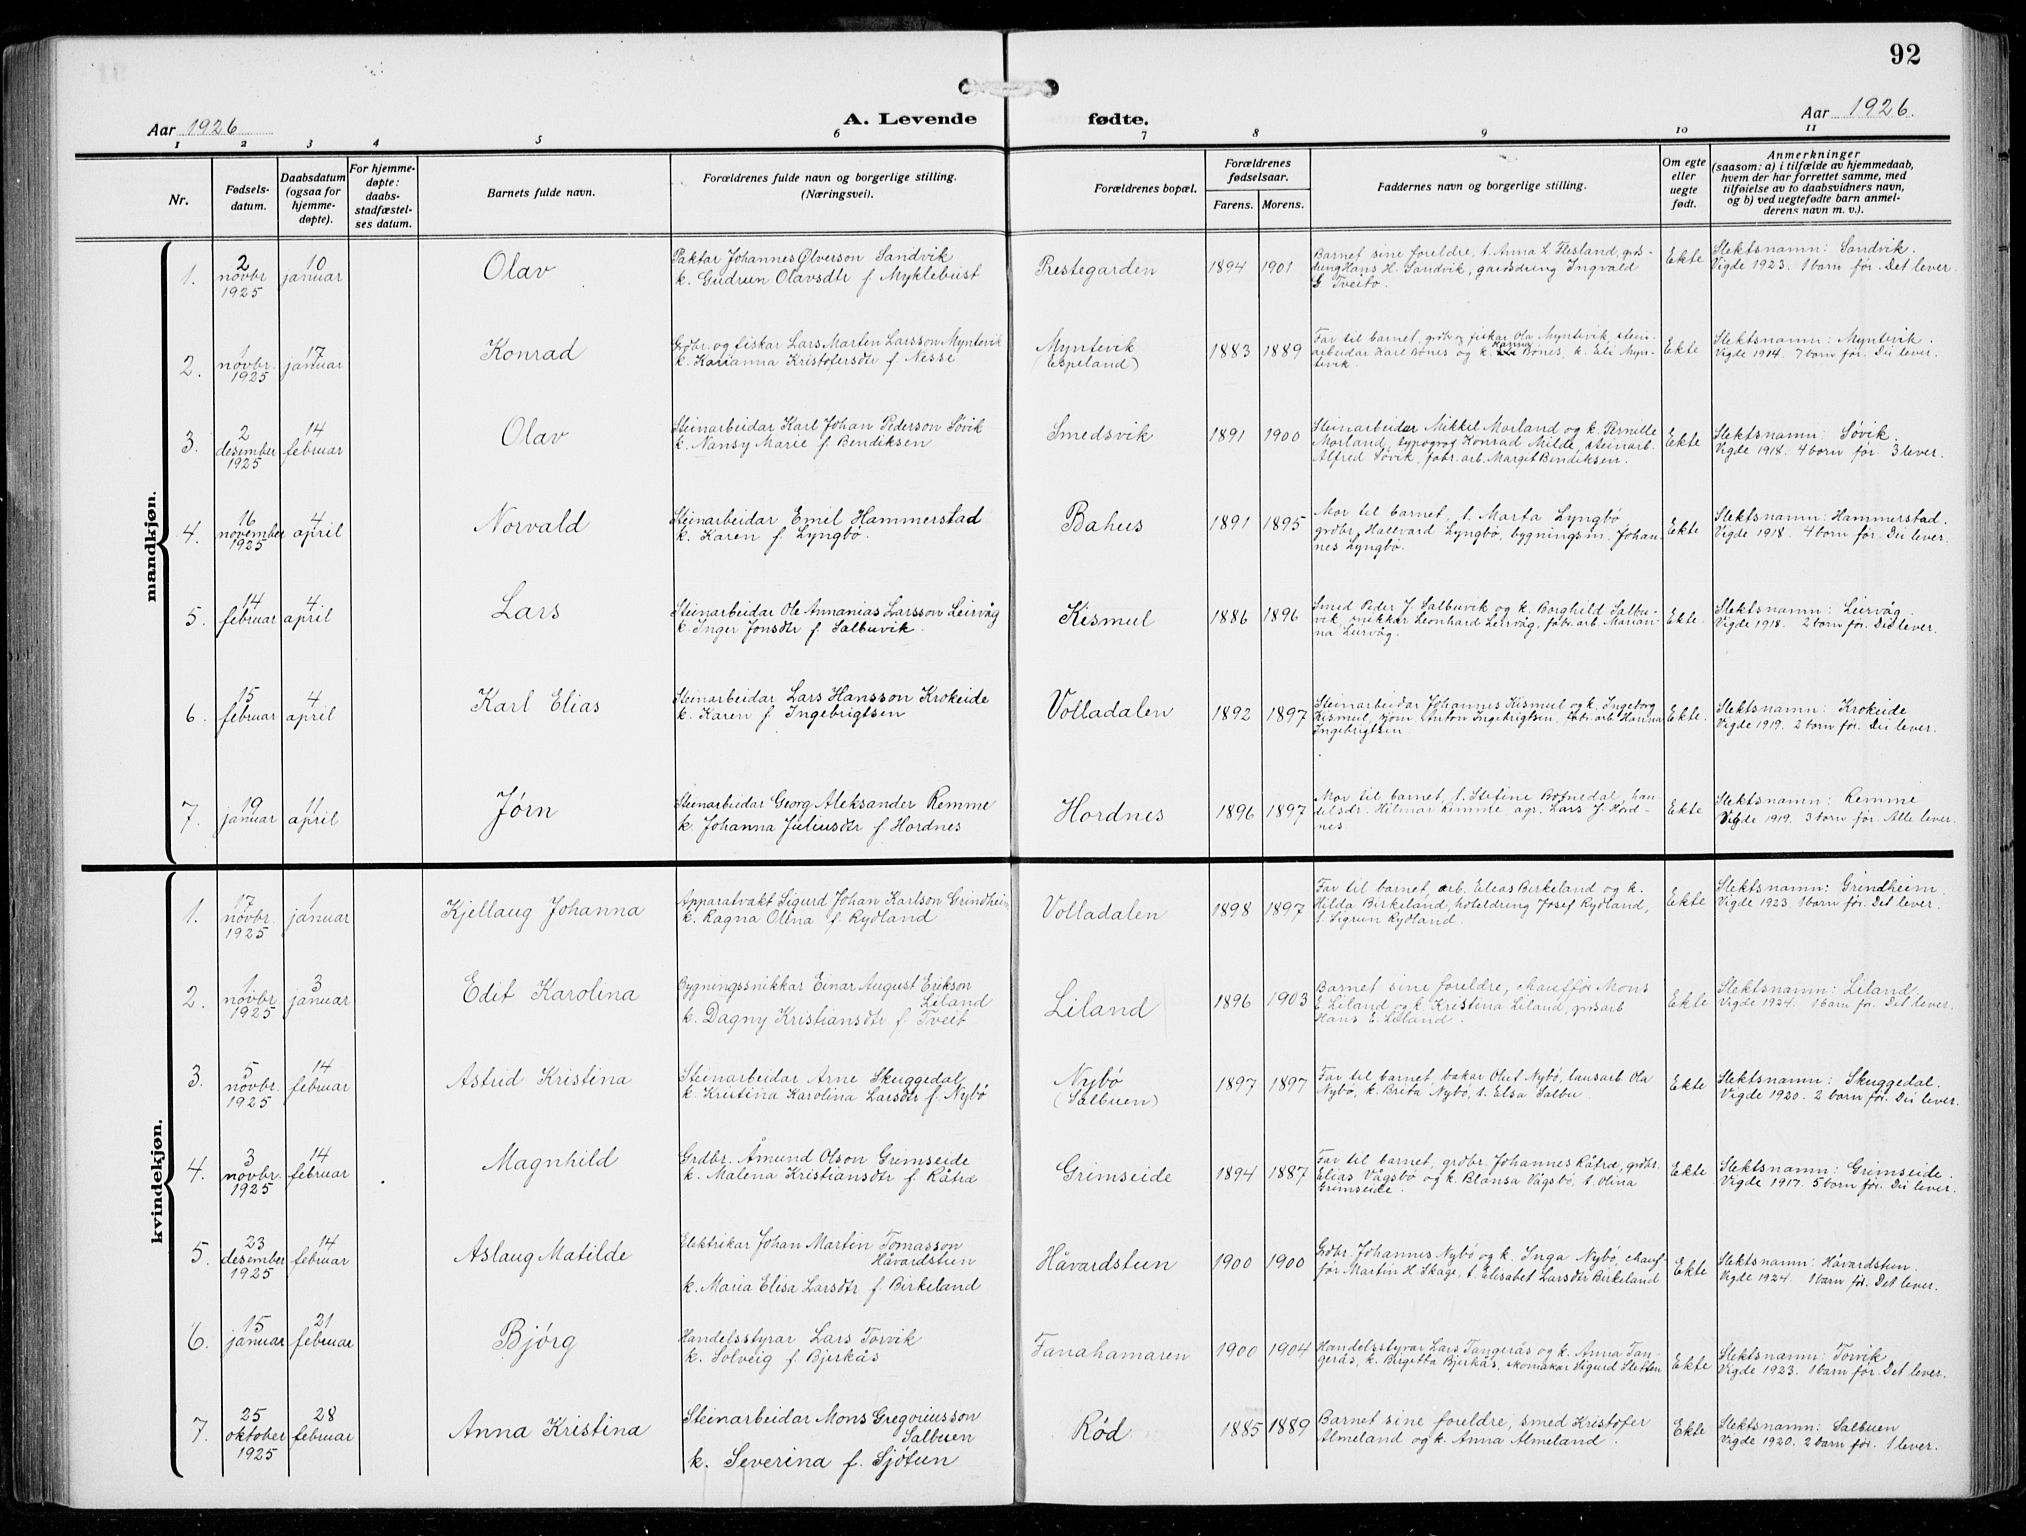 92
Aar 1926
A. Levende fødte.
Aar 1926.
1 2 3 4 5 6 7 8 9 10 11
Nr.
Fødselsdatum.
Daabsdatum (ogsaa for hjemmedøpte).
For hjemmedøpte: daabsstadfæstelses datum.
Barnets fulde navn.
Forældrenes fulde navn og borgerlige stilling. (Næringsvei).
Forældrenes bopæl.
Forældrenes fødselsaar.
Farens. Morens.
Faddernes navn og borgerlige stilling.
Om egte eller uegte født.
Anmerkninger (saasom: a) i tilfælde av hjemmedaab, hvem der har forrettet samme, med tilføielse av to daabsvidners navn, og b) ved uegtefødte barn anmelderens navn m. v.).
mandkjøn.
1. 2 novbr 1925 10 januar Olav
Paktar Johannes Ølverson Sandvik
k. Gudrun Olavsdtr f. Myklebust
Prestegarden 1894 1901
Barnet sine foreldre, t. Anna L Flesland, grs-
dung Hans H. Sandvik, gardsdrung Ingvald
G Tveito.
Ekte
Slektsnamn: Sandvik.
Vigde 1923. 1 barn før. Det lever.
2. 1 novbr. 1925 17 januar Konrad
Grdbr. og fiskar Lars Marten Larsson Myntevik
k. Karianna Kristofersdtr f. Nesse
Myntevik (Espeland) 1883 1889
Far til barnet, grdbr og fiskar Ola Myntevik, stein-
arbeidar Karl Bønes og k. Hanna Bønes, k. Eli Myn-
tevik.
Ekte
Slektsnamn: Myntevik.
Vigde 1914. 7 born før. Dei lever.
3. 2 desember 1925 14 februar Olav
Steinarbeidar Karl Johan Pederson Søvik
k. Nansy Marie f. Bendiksen
Smedsvik 1891 1900
Steinarbeidar Mikkel Morland og k. Pernille
Morland, typograf Konrad Milde, steinarb.
Alfred Søvik, fabr. arb. Margit Bendiksen.
Ekte
Slektsnamn: Søvik.
Vigde 1918. 4 born før. 3 lever.
4. 16 november 1925 4 april Norvald
Steinarbeidar Emil Hammerstad
k. Karen f. Lyngbø.
Bahus 1891 1895
Mor til barnet, t. Marta Lyngbø,
grdbr. Hallvard Lyngbø, bygningsm. Johan-
nes Lyngbø.
Ekte
Slektsnamn: Hammerstad.
Vigde 1918. 4 born før. Dei lever.
5. 14 februar 4 april Lars
Steinarbeidar Ole Annanias Larsson Leirvåg
k. Inger Jonsdtr f. Salbuvik.
Kismul 1886 1896
Smed Peder J. Salbuvik og k. Borghild Salbu-
vik, snikkar Leonhard Leirvåg, fabr. arb. Marian-
na Leirvåg.
Ekte.
Slektsnamn: Leirvåg.
Vigde 1918. 2 born før. Dei lever.
6. 15 februar 4 april Karl Elias
Steinarbeidar Lars Hansson Krokeide
k. Karen f. Ingebrigtsen
Volladalen 1892 1897
Steinarbeidar Johannes Kismul og k. Ingeborg
Kismul, sjøm. Anton Ingebrigtsen, fabr. arb. Hanna
Ingebrigtsen
Ekte.
Slektsnamn: Krokeide
Vigde 1919. 2 born før. Dei lever.
7. 19 januar 11 april Jørn
Steinarbeidar Georg Aleksander Remme
k. Johanna Juliusdtr f. Hordnes
Hordnes 1896 1897
Mor til barnet, t. Stetine Botnedal, han-
delsdr. Hilmar Remme, agr. Lars J. Hord-
nes.
Ekte
Slektsnamn: Remme
Vigde 1919. 3 born før. Alle lever.
kvindekjøn.
1. 17 novbr. 1925 1 januar Kjellaug Johanna
Apparatvakt Sigurd Johan Karlson Grindheim
k. Ragna Olina f. Rydland
Volladalen 1898 1897
Far til barnet, arb. Elias Birkeland og k.
Hilda Birkeland, hoteldrung Josef Rydland,
t. Sigrun Rydland.
Ekte
Slektsnamn: Grindheim.
Vigde 1923 1 barn før. Det lever.
2. 1 novbr 1925 3 januar Edit Karolina
Bygningssnikkar Einar August Erikson
Liland
k. Dagny Kristiansdtr f. Tveit
Liland 1896 1903
Barnet sine foreldre, chauffør Mons
E Liland og k. Kristina Liland, grdsarb
Hans E. Liland.
Ekte
Slektsnamn: Liland.
Vigde 1924. 1 barn før. Det lever.
3. 5 novbr. 1925 14 februar Astrid Kristina
Steinarbeidar Arne Skuggedal
k. Kristina Karolina Larsdtr f. Nybø
Nybø (Salbuen) 1897 1897
Far til barnet, bakar Oluf Nybø, lausarb. Ola
Nybø, k. Brita Nybø, t. Elsa Salbu.
Ekte
Slektsnamn: Skuggedal.
Vigde 1920. 2 born før. Dei lever.
4. 3 novbr. 1925 14 februar Magnhild
Grdbr. Åmund Olson Grimseide
k. Malena Kristiansdtr f. Råtræ
Grimseide 1894 1887
Far til barnet, grdbr. Johannes Råtræ, grdbr.
Elias Vågsbø og k. Blansa Vågsbø, t. Olina
Grimseide.
Ekte
Slektsnamn: Grimseide.
Vigde 1917. 5 born før. Dei lever.
5. 23 desember 1925 14 februar Aslaug Matilde
Elektrikar Johan Martin Tomasson
Håvardstun
k. Maria Elisa Larsdtr f. Birkeland
Håvardstun 1900 1900
Grdbr. Johannes Nybø og k. Inga Nybø, chauf-
før Martin H. Skage, t. Elisabet Larsdtr Birkeland
Ekte
Slektsnamn: Håvardstun.
Vigde 1924. 1 barn før. Det lever.
6. 15 januar 21 februar Bjørg
Handelsstyrar Lars Torvik
k. Solveig f. Bjerkås
Fanahamaren 1900 1904
Handelsstyrar Lars Tangerås og k. Anna Tan-
gerås, k. Birgitta Bjerkås, skomakar Sigurd Sletten
Ekte
Slektsnamn: Torvik
Vigde 1923. 1 barn før. Det lever.
7. 25 oktober 1925 28 februar Anna Kristina
Steinarbeidar Mons Gregoriusson
Salbuen
k. Severina f. Sjøtun
Rød 1885 1889
Barnet sine foreldre, smed Kristofer
Almeland og k. Anna Almeland.
Ekte
Slektsnamn: Salbuen
Vigde 1920. 2 born før. 1 lever.